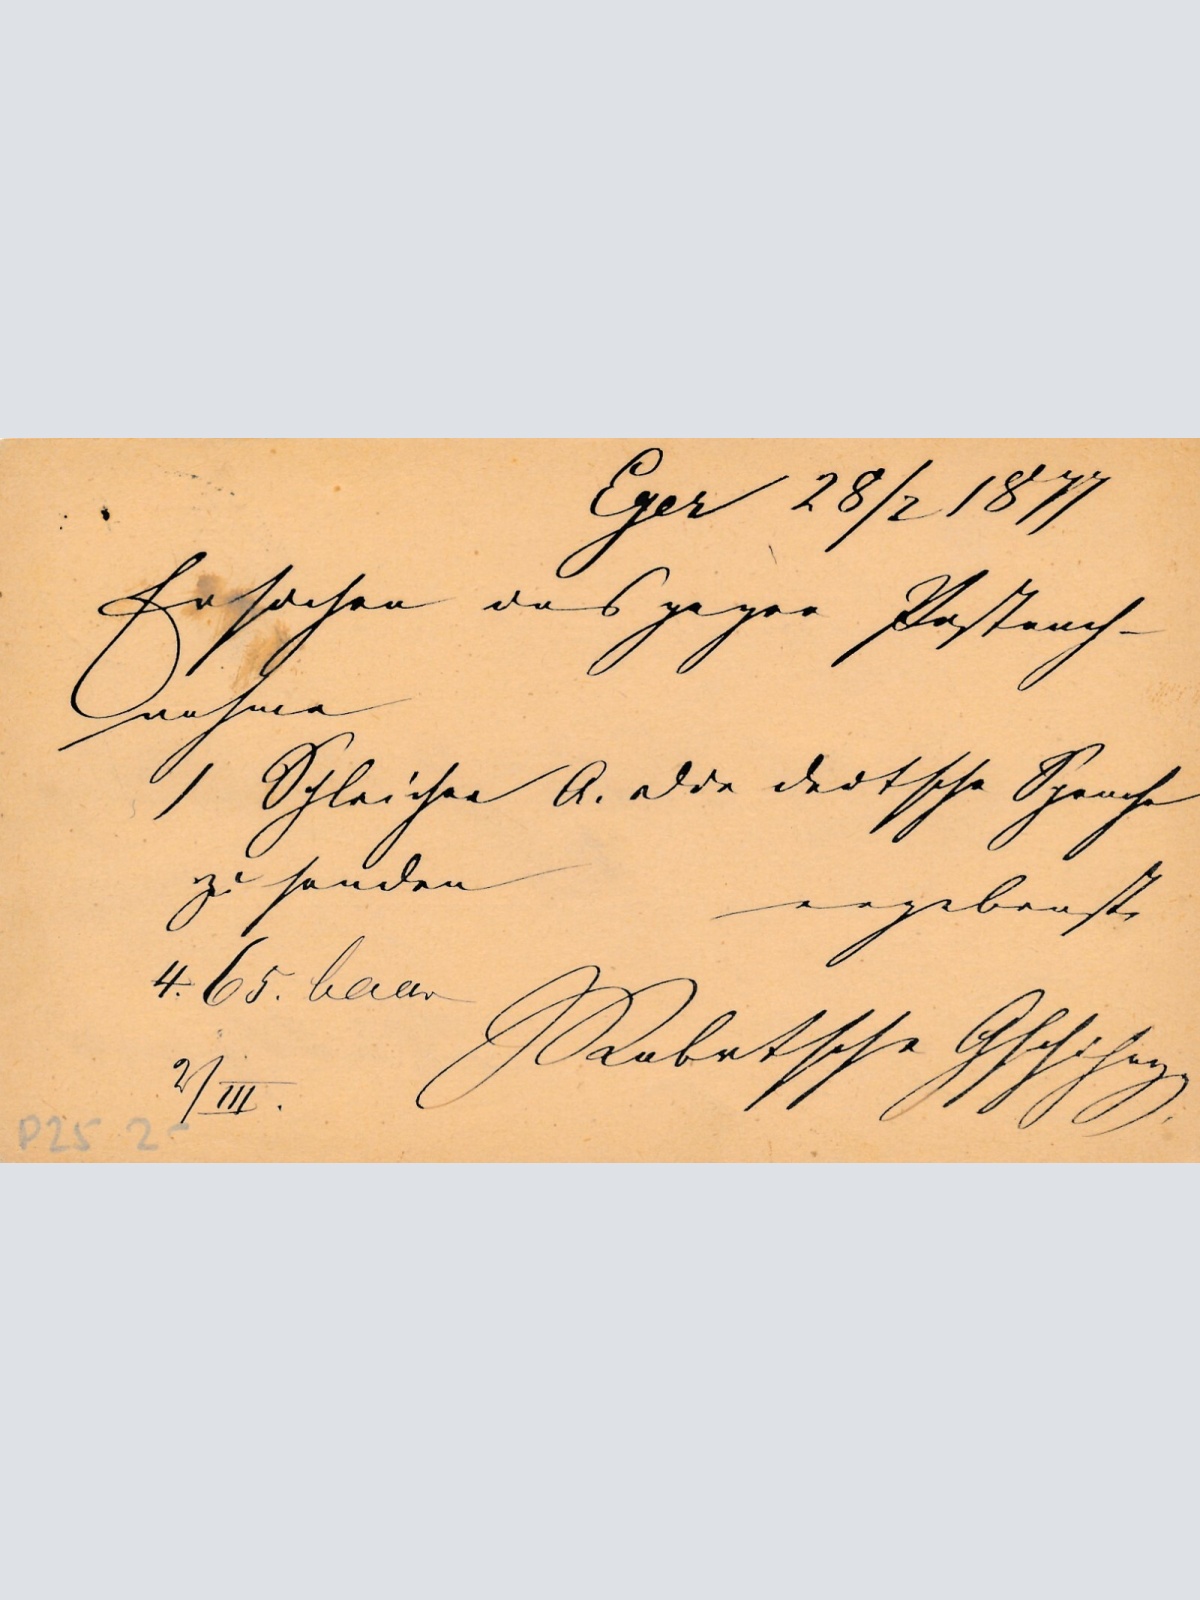 Eger 28/2 1877
Ersuchen uns gegen Postnach-
nahme
1 Schleicher A. die deutsche Sprache
zu senden
ergebenst
4. 65. baar
2/III.
P25 2-